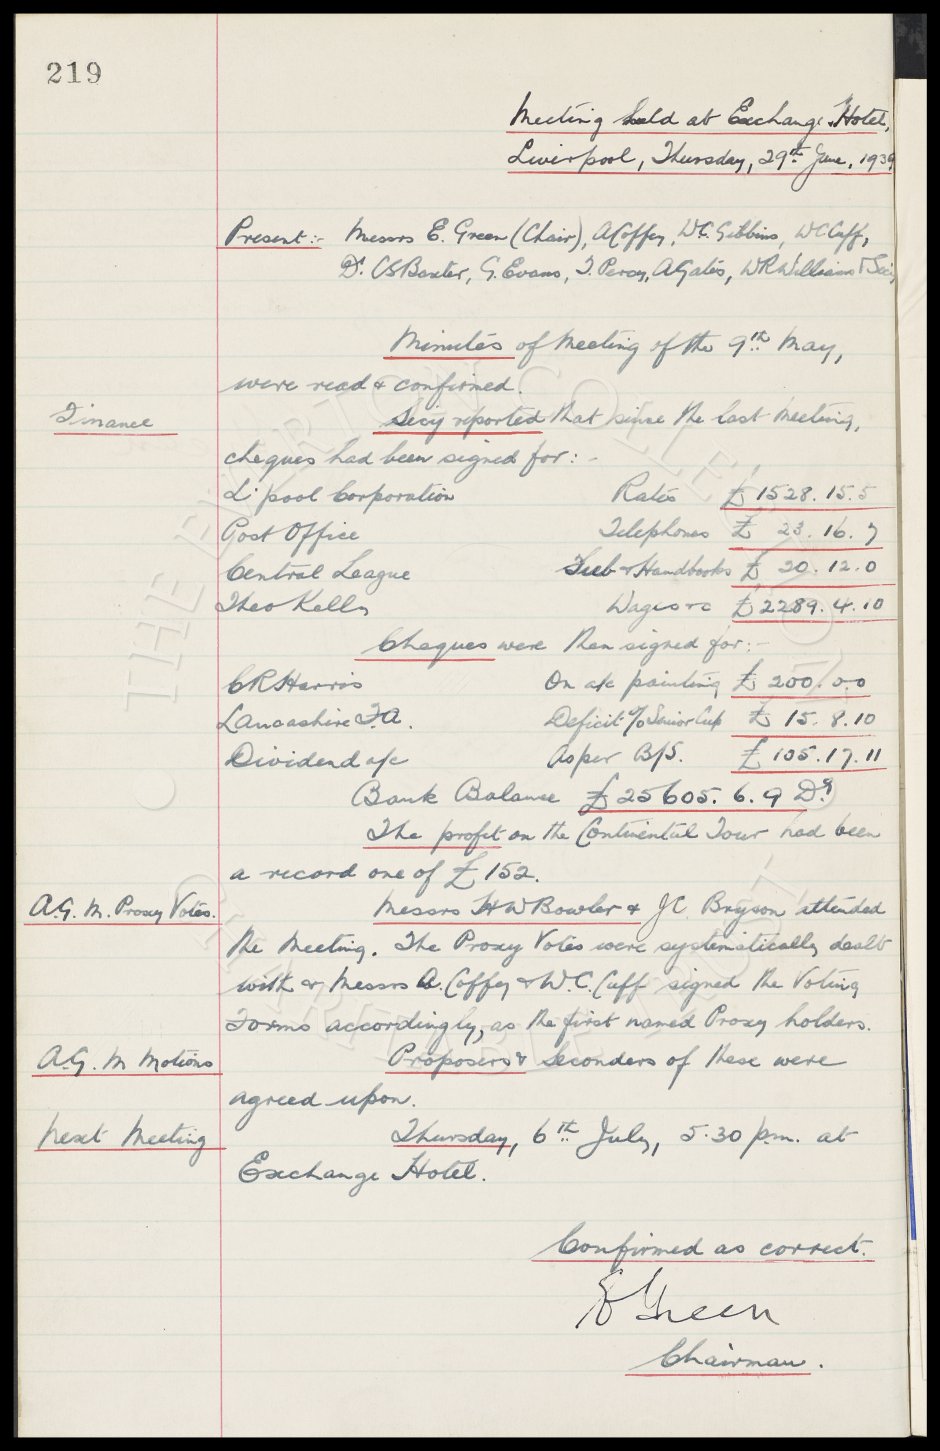 219
Meeting held at Exchange Hotel,
Liverpool, Thursday, 29th June, 1939
Present:- Messrs E. Green (Chair), A Coffey, W.C. Gibbins, W C Cuff,
Dr. C S Baxter, G. Evans, T. Percy, A Gates, W R Williams & Secy,
Minutes of Meeting of the 9th May,
were read & confirmed.
Finance
Secy reported that since the last Meeting,
cheques had been signed for:-
L'pool Corporation Rates £1528.15.5
Post Office Telephones £ 23.16.7
Central League Sub & Handbooks £ 20.12.0
Theo Kelly Wages &c £2289.4.10
Cheques were then signed for:-
C R Harris On a/c painting £ 200.0.0
Lancashire F.A. Deficit % Senior Cup £ 15.8.10
Dividend a/c As per B/S. £ 105.17.11
Bank Balance £25605.6.9 Dr.
The profit on the Continental Tour had been
a record one of £152.
A.G.M. Proxy Votes.
Messrs H W Bowler & J C Bryson attended
the Meeting. The Proxy Votes were systematically dealt
with & Messrs A. Coffey & W.C. Cuff signed the Voting
Forms accordingly, as the first named Proxy holders.
A.G.M Motions
Proposers & Seconders of these were
agreed upon.
Next Meeting
Thursday, 6th July, 5.30 p.m. at
Exchange Hotel.
Confirmed as correct.
E Green
Chairman.
THE EVERTON COLLECTION
CHARITABLE TRUST